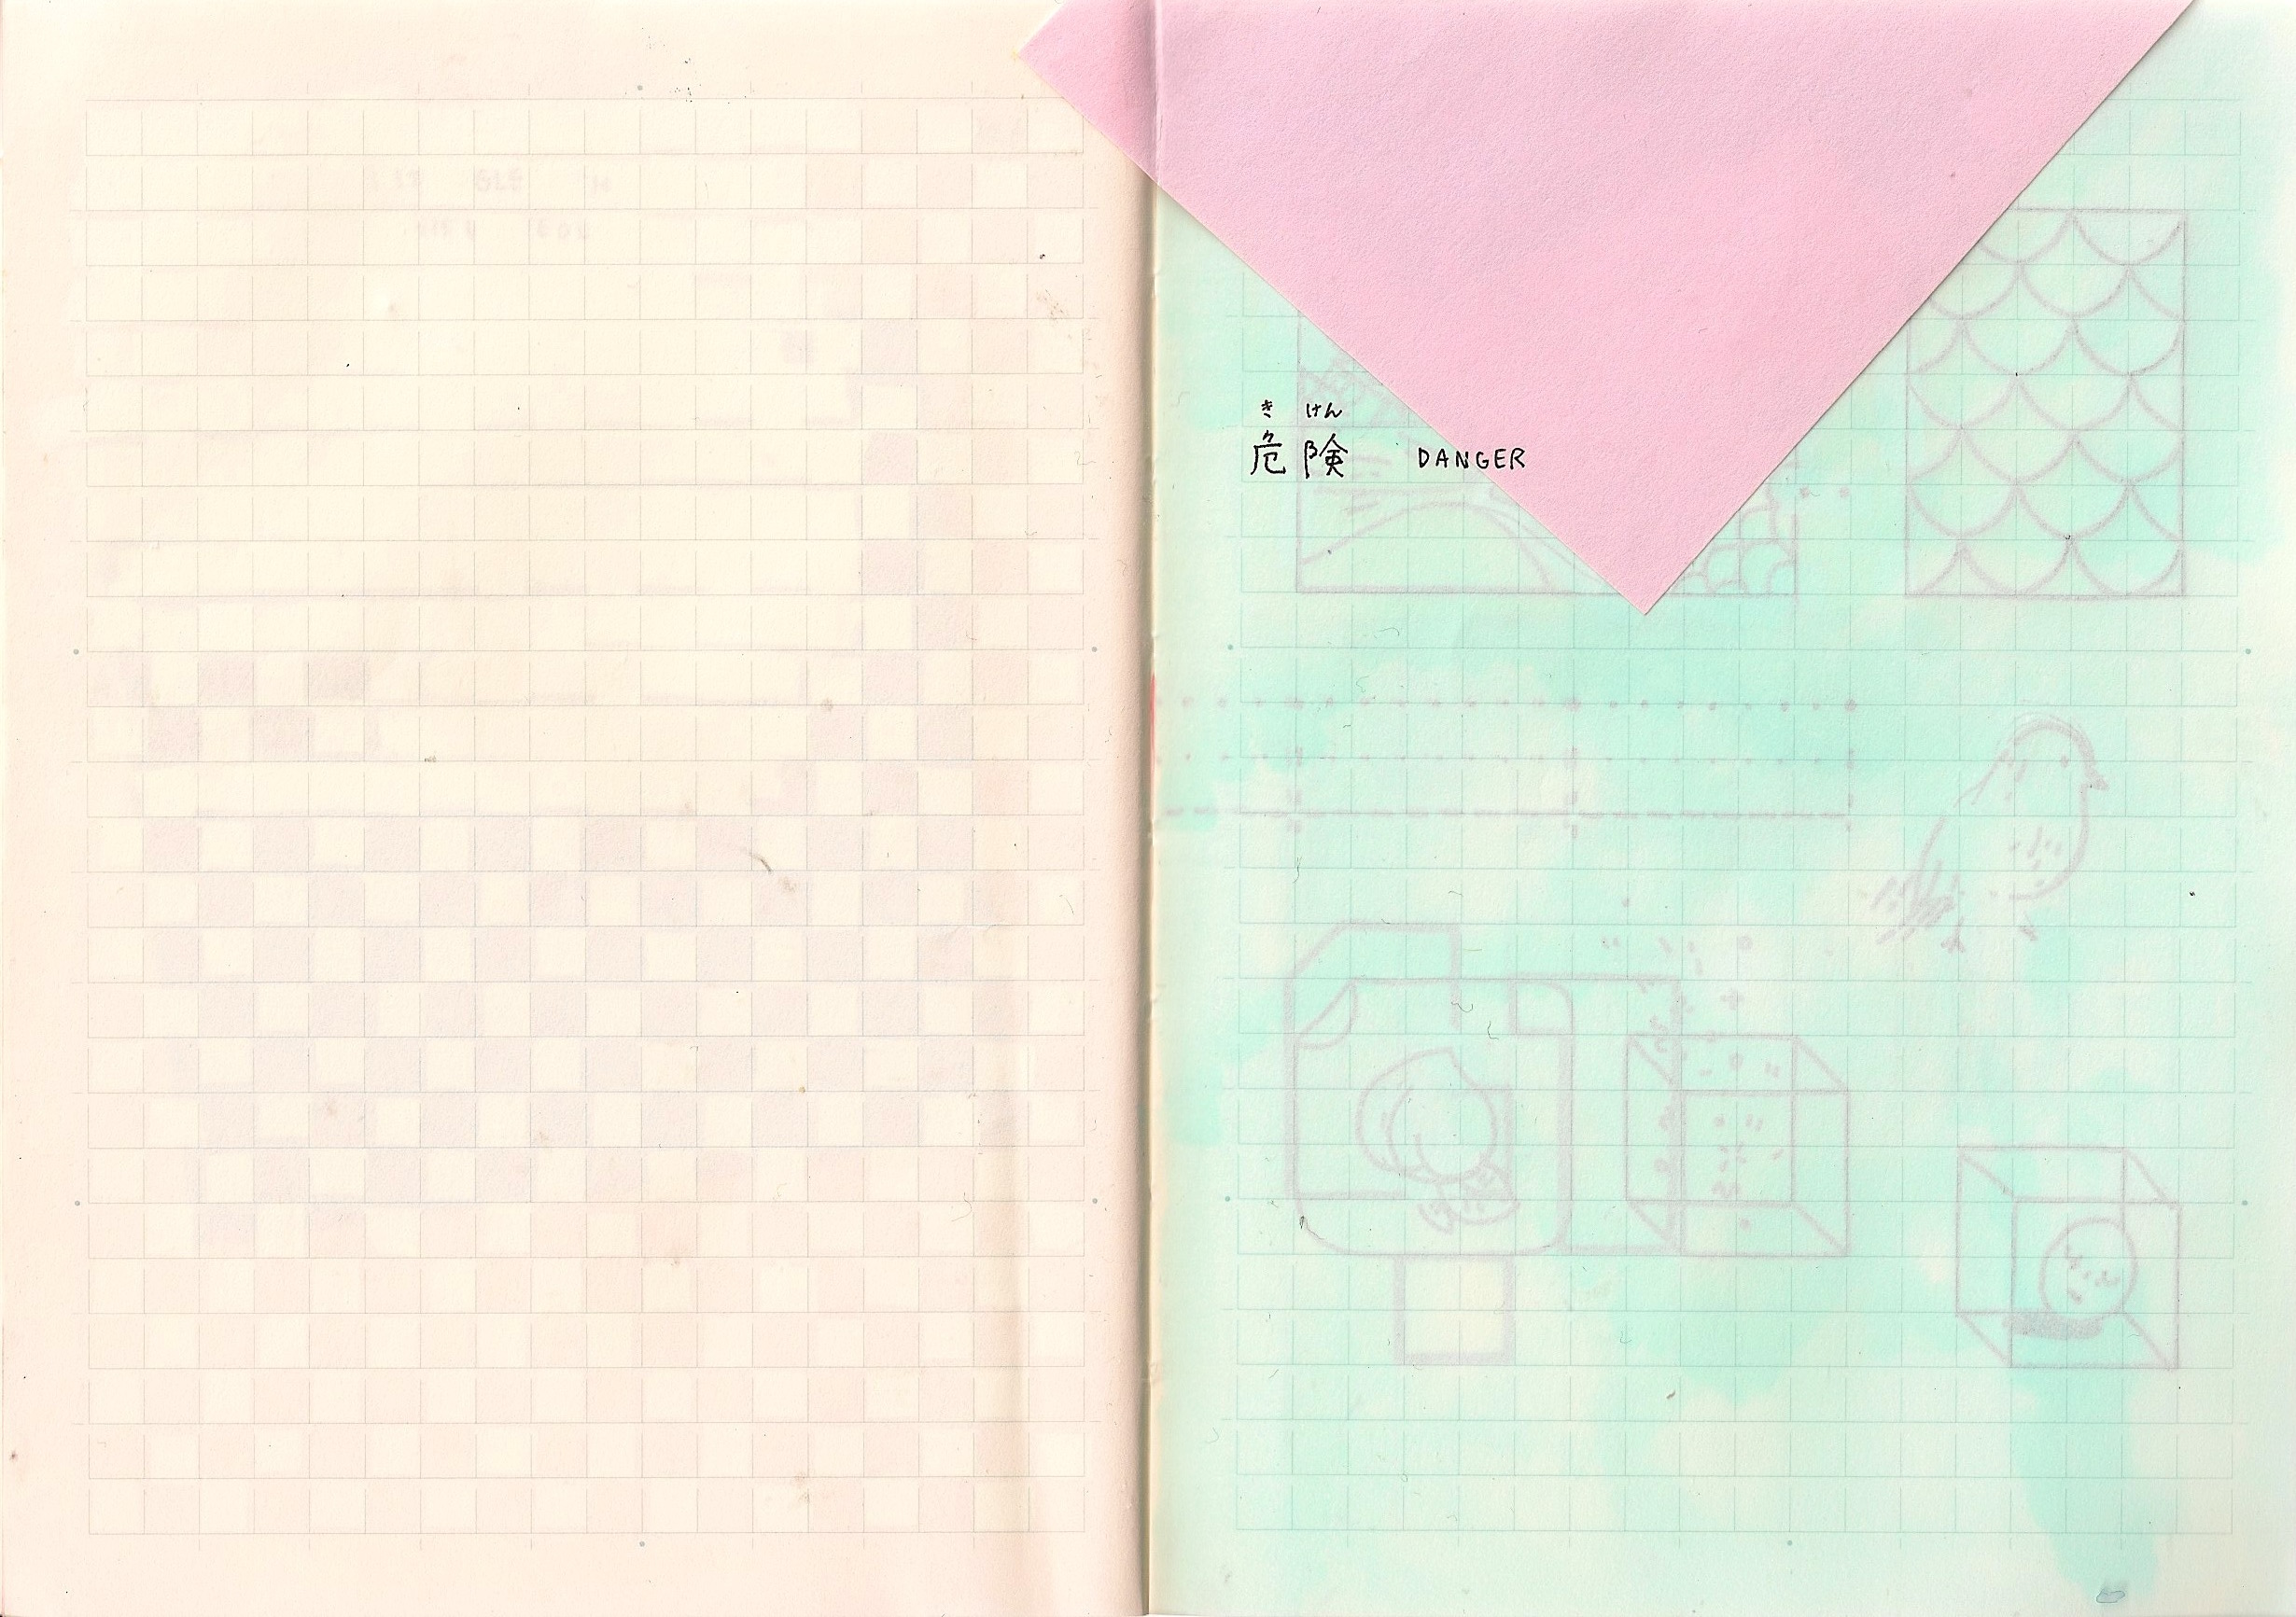 き けん
危険 DANGER